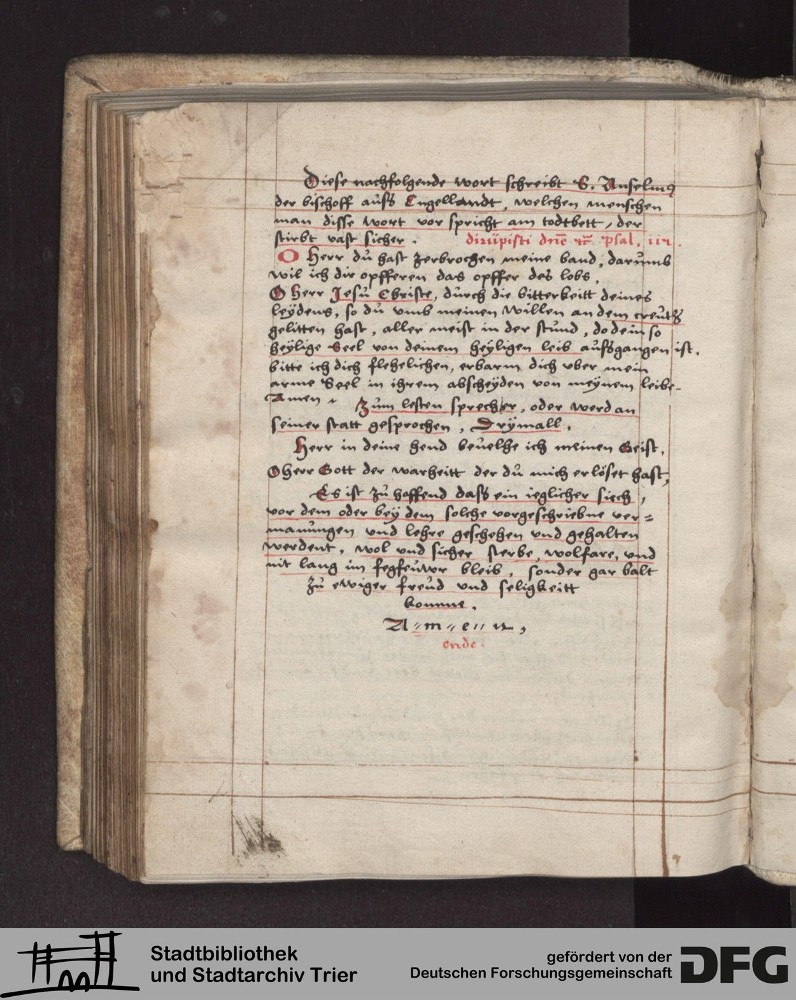 Diese nachfolgende wort schreibt S. Anselmus
der bischoff auß Engellandt, welchen menschen
man disse wort vor spricht am todtbett, der
stirbt vast sicher. dirupisti dne psal. 115.
O Herr du hast zerbrochen meine band, darumb
wil ich dir opfferen das opffer des lobs.
O Herr Jesu Christe, durch die bitterkeitt deines
leydens, so du umb meinen willen an dem creutz
gelitten hast, aller meist in der stund, do dein so
heylige Seel von deinem heyligen leib außgangen ist.
bitte ich dich flehelichen, erbarm dich uber mein
arme Seel in ihrem abscheyden von meynem leibe.
Amen. Zum lesten sprech er, oder werd an
seiner statt gesprochen, Drymall.
Herr in deine hend bevelhe ich meinen Geist,
O Herr Gott der warheitt der du mich erlöset hast,
Es ist zu hoffend dass ein ieglicher siech,
vor dem oder bey dem solche vorgeschriebne ver=
manungen und lehre geschehen und gehalten
werdent, wol und sicher sterbe, wolfare, und
nit lang im fegfeuwr bleib, sonder gar balt
zu ewiger freud und seligkeitt
komme.
A〃m〃e〃n,
ende.
Stadtbibliothek
und Stadtarchiv Trier
gefördert von der
Deutschen Forschungsgemeinschaft
DFG